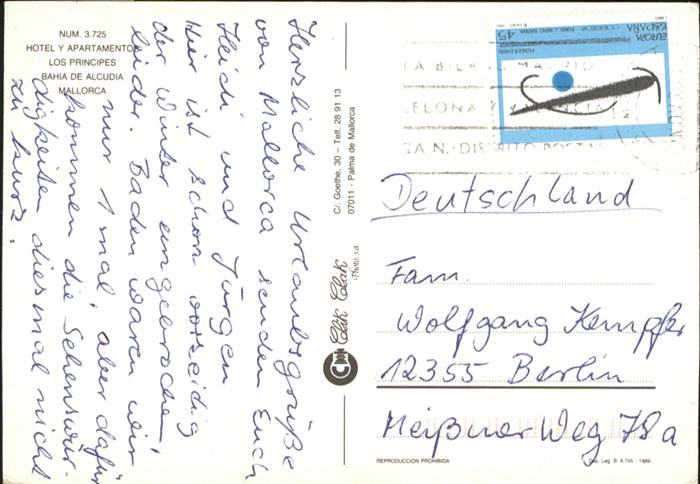 NUM. 3.725
HOTEL Y APARTAMENTOS
LOS PRINCIPES
BAHIA DE ALCUDIA
MALLORCA
Herzliche Urlaubsgrüße
von Mallorca senden Euch
Heidi und Jürgen
Hier ist schon vorzeitig
der Winter eingebrochen,
leider. Baden waren wir
nur 1 mal, aber dafür
kommen die Sehenswür-
digkeiten diesmal nicht
zu kurz.
C/. Goethe, 30 – Telf. 28 91 13
07011 - Palma de Mallorca
Clik Clak
Photo s.a.
EUROPA
ESPAÑA
45
BILBAO MADRID
ELONA Y VALENCIA
GA N. DISTRITO POSTAL
Deutschland
Fam.
Wolfgang Kempfer
12355 Berlin
Meißner Weg 78a
REPRODUCCION PROHIBIDA
Dep. Leg. B. 6.745 - 1989